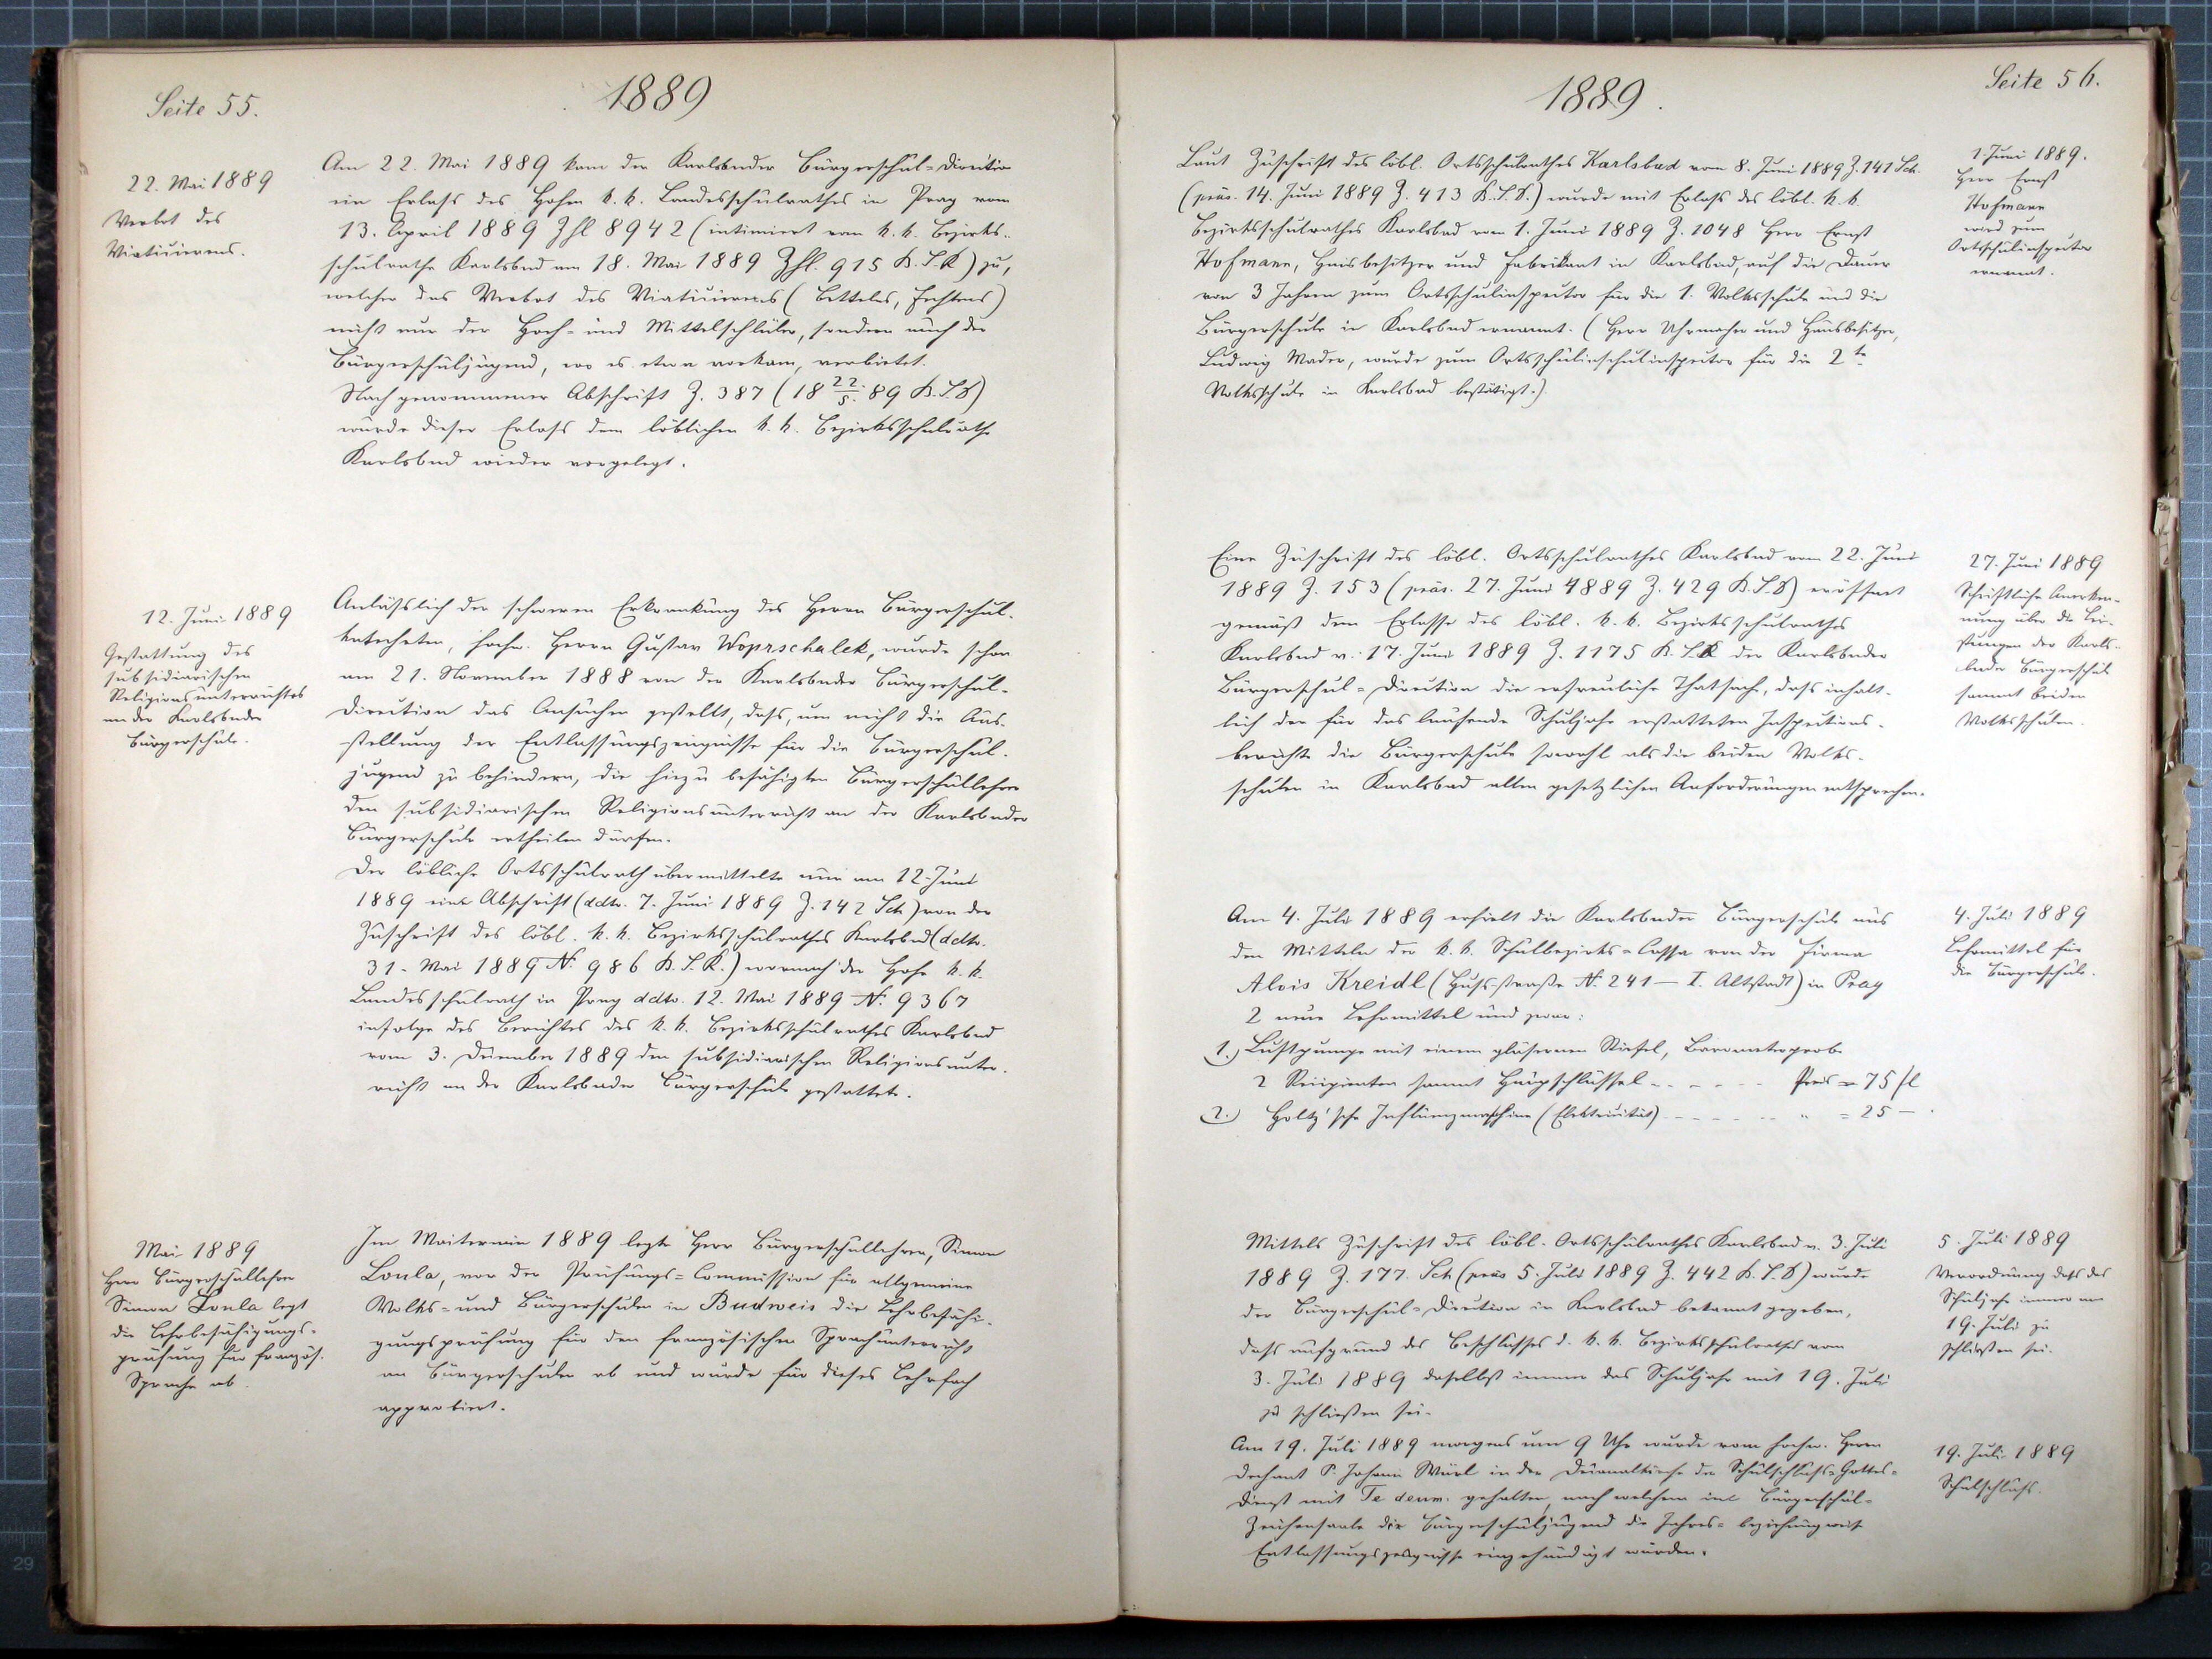 Seite 55.
1889
22. Mai 1889
Verbot des
Viaticierens.
Am 22. Mai 1889 kam der Karlsbader Bürgerschul-Direction
ein Erlaß des Hohen k. k. Landesschulrathes in Prag vom
13. April 1889 Zhl 8942 (intimiert vom k. k. Bezirks-
schulrathe Karlsbad am 18. Mai 1889 Zhl. 915 B.S.R) zu,
welcher das Verbot des Viaticierens (Bettelns, Fechtens)
nicht nur der Hoch- und Mittelschüler, sondern auch der
Bürgerschuljugend, wo es etwa vorkam, verbietet.
Nach genommener Abschrift Z. 387 (18 22/5. 89 B.S.D)
wurde dieser Erlaß dem löblichen k. k. Bezirksschulrathe
Karlsbad wieder vorgelegt.
12. Juni 1889
Gestattung des
subsidiarischen
Religionsunterrichtes
an der Karlsbader
Bürgerschule.
Anläßlich der schweren Erkrankung des Herrn Bürgerschul-
katecheten, hochw. Herrn Gustav Woprschalek, wurde schon
am 21. November 1888 von der Karlsbader Bürgerschul-
direction das Ansuchen gestellt, daß, um nicht die Aus-
stellung der Entlassungszeugnisse für die Bürgerschul-
jugend zu behindern, die hiezu befähigten Bürgerschullehrer
den subsidiarischen Religionsunterricht an der Karlsbader
Bürgerschule ertheilen dürfen.
Der löbliche Ortsschulrath übermittelte nun am 12. Juni
1889 eine Abschrift (ddto. 7. Juni 1889 Z. 142 Sch) von der
Zuschrift des löbl. k. k. Bezirksschulrathes Karlsbad (ddto.
31. Mai 1889 N: 986 B.S.R.) wornach der Hohe k. k.
Landesschulrath in Prag ddto. 12. Mai 1889 N: 9367
infolge des Berichtes des k. k. Bezirksschulrathes Karlsbad
vom 3. December 1889 den subsidiarischen Religionsunter-
richt an der Karlsbader Bürgerschule gestattete.
Mai 1889
Herr Bürgerschullehrer
Simon Loula legt
die Lehrbefähigungs-
prüfung für französ.
Sprache ab.
Im Maitermin 1889 legte Herr Bürgerschullehrer, Simon
Loula, vor der Prüfungs-Commission für allgemeine
Volks- und Bürgerschulen in Budweis die Lehrbefähi-
gungsprüfung für den französischen Sprachunterricht
an Bürgerschulen ab und wurde für dieses Lehrfach
approbiert.
Seite 56.
1889.
Laut Zuschrift des löbl. Ortsschulrathes Karlsbad vom 8. Juni 1889 Z. 141 Sch.
(präs. 14. Juni 1889 Z. 413 B.S.D.) wurde mit Erlaß des löbl. k. k.
Bezirksschulrathes Karlsbad vom 1. Juni 1889 Z. 1048 Herr Ernst
Hofmann, Hausbesitzer und Fabrikant in Karlsbad, auf die Dauer
von 3 Jahren zum Ortsschulinspector für die 1. Volksschule und die
Bürgerschule in Karlsbad ernannt. (Herr Uhrmacher und Hausbesitzer,
Ludwig Mader, wurde zum Ortsschulinschulinspector für die 2te
Volksschule in Karlsbad bestätigt.)
1. Juni 1889.
Herr Ernst
Hofmann
wird zum
Ortsschulinspector
ernannt.
Eine Zuschrift des löbl. Ortsschulrathes Karlsbad vom 22. Juni
1889 Z. 153 (präs. 27. Juni 1889 Z. 429 B.S.D) eröffnet
gemäß dem Erlasse des löbl. k. k. Bezirksschulrathes
Karlsbad v. 17. Juni 1889 Z. 1175 B.S.R der Karlsbader
Bürgerschul-Direction die erfreuliche Thatsache, daß inhalt-
lich der für das laufende Schuljahr erstatteten Inspections-
berichte die Bürgerschule sowohl als die beiden Volks-
schulen in Karlsbad allen gesetzlichen Anforderungen entsprechen.
27. Juni 1889
Schriftliche Anerken-
nung über die Lei-
stungen der Karls-
bader Bürgerschule
sammt beiden
Volksschulen.
Am 4. Juli 1889 erhielt die Karlsbader Bürgerschule aus
den Mitteln der k. k. Schulbezirks-Cassa von der Firma
Alois Kreidl (Hussstraße N: 241 – I. Altstadt) in Prag
2 neue Lehrmittel und zwar:
1.) Luftpumpe mit einem gläsernen Stiefel, Barometerprobe
2 Recipienten sammt Hauptschlüssel - - - - - Preis = 75 fl
2.) Holtz'sche Influenzmaschine (Elektricität) - - - - - " = 25 –
4. Juli 1889
Lehrmittel für
die Bürgerschule.
Mittels Zuschrift des löbl. Ortsschulrathes Karlsbad v. 3. Juli
1889 Z. 177. Sch (präs 5. Juli 1889 Z. 442 B.S.D) wurde
der Bürgerschul-Direction in Karlsbad bekannt gegeben,
daß aufgrund des Beschlusses d. k. k. Bezirksschulrathes vom
3. Juli 1889 daselbst immer das Schuljahr mit 19. Juli
zu schließen sei.
5. Juli 1889
Verordnung daß das
Schuljahr immer am
19. Juli zu
schließen sei.
Am 19. Juli 1889 morgens um 9 Uhr wurde vom hochw. Herrn
Dechant P. Johann Würl in der Decanalkirche der Schulschluß-Gottes-
dienst mit Te deum. gehalten, nach welchem im Bürgerschul-
Zeichensaale der Bürgerschuljugend die Jahres- beziehungsweise
Entlassungszeugnisse eingehändigt wurden.
19. Juli 1889
Schulschluß.
29